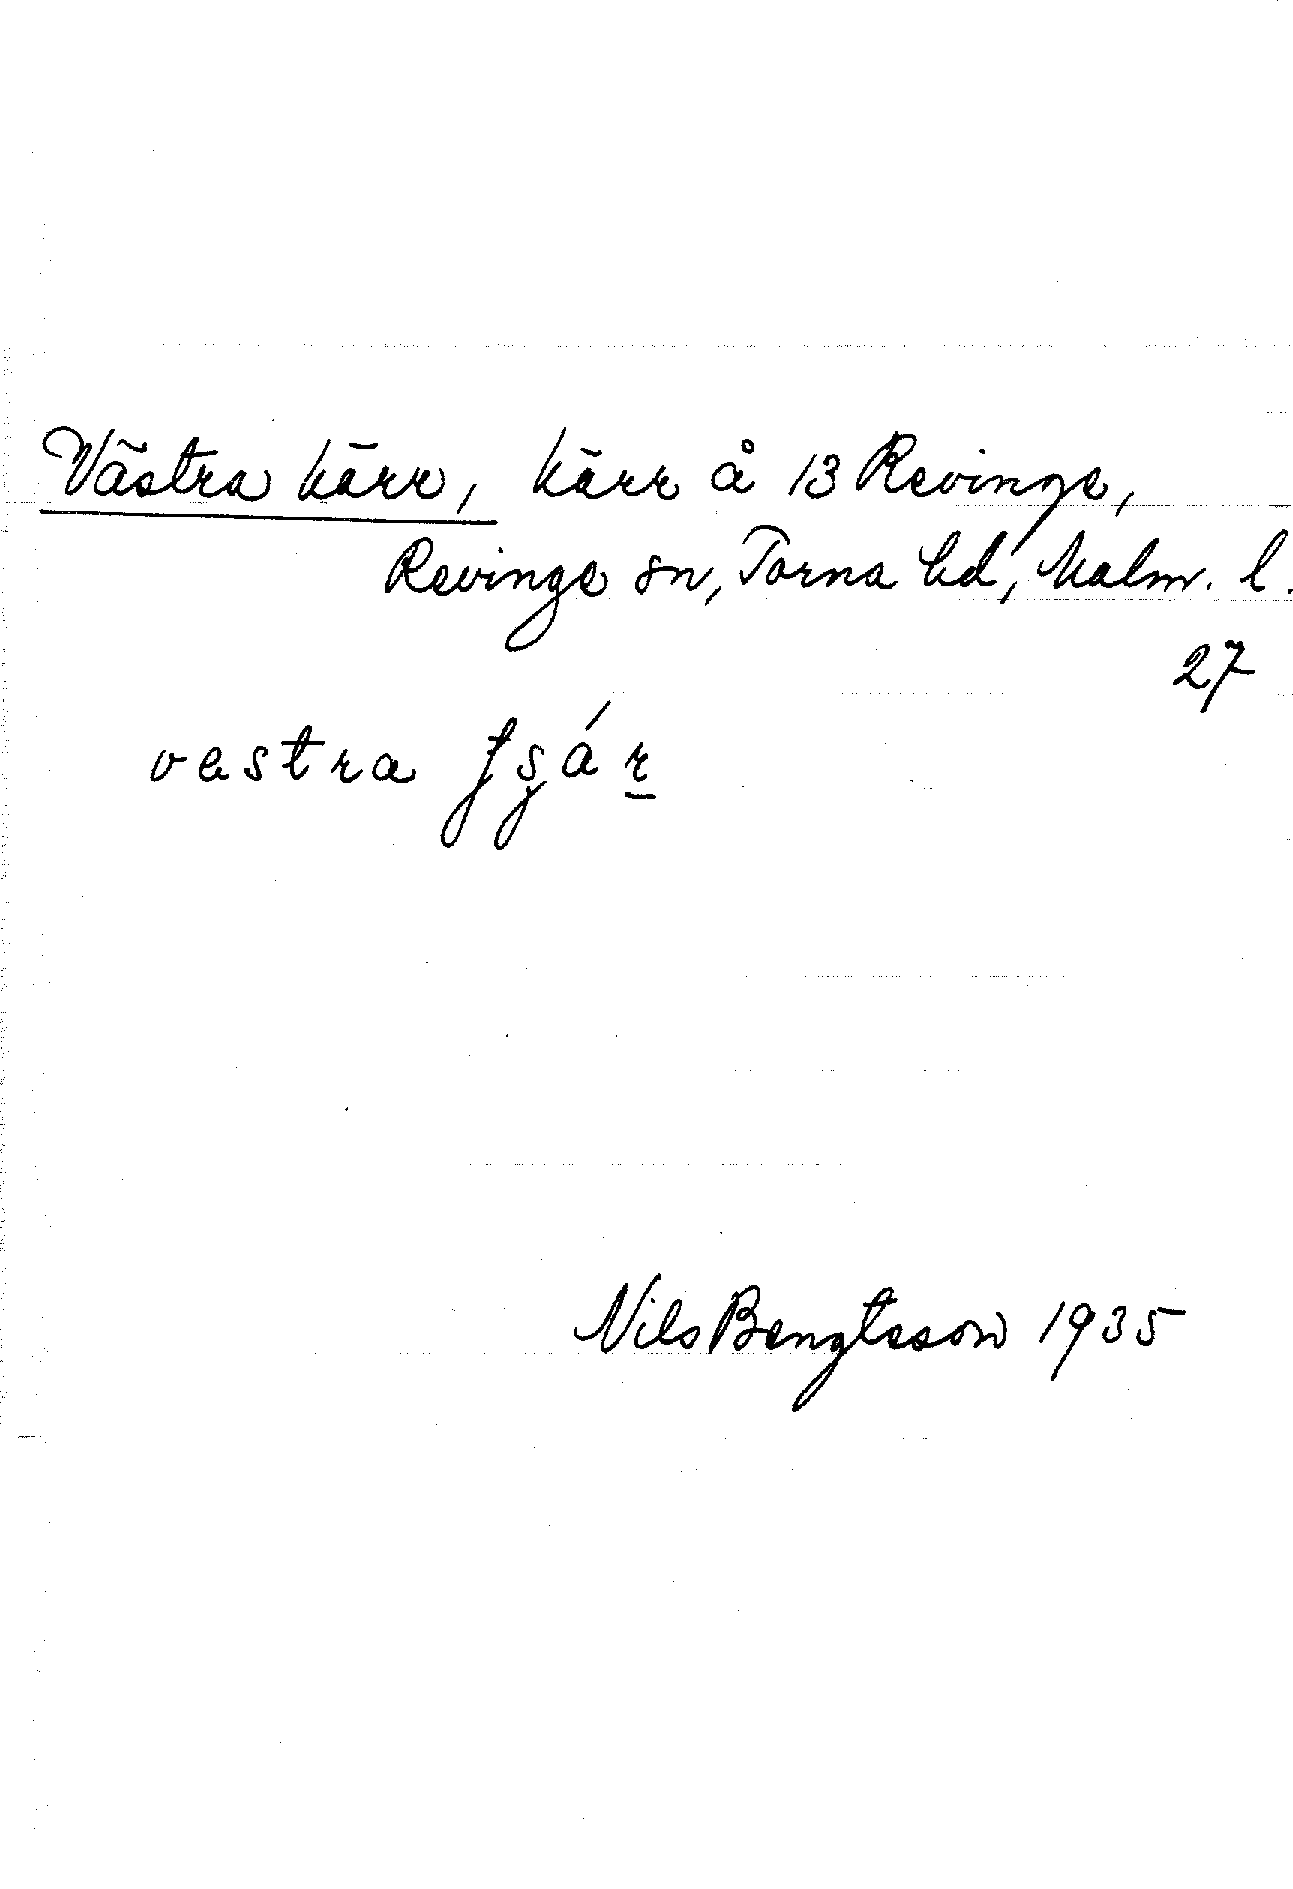 Västra kärr, kärr å 13 Revinge,
Revinge sn, Torna hd, Malm. l.
27
vestra
Nils Bengtsson 1935